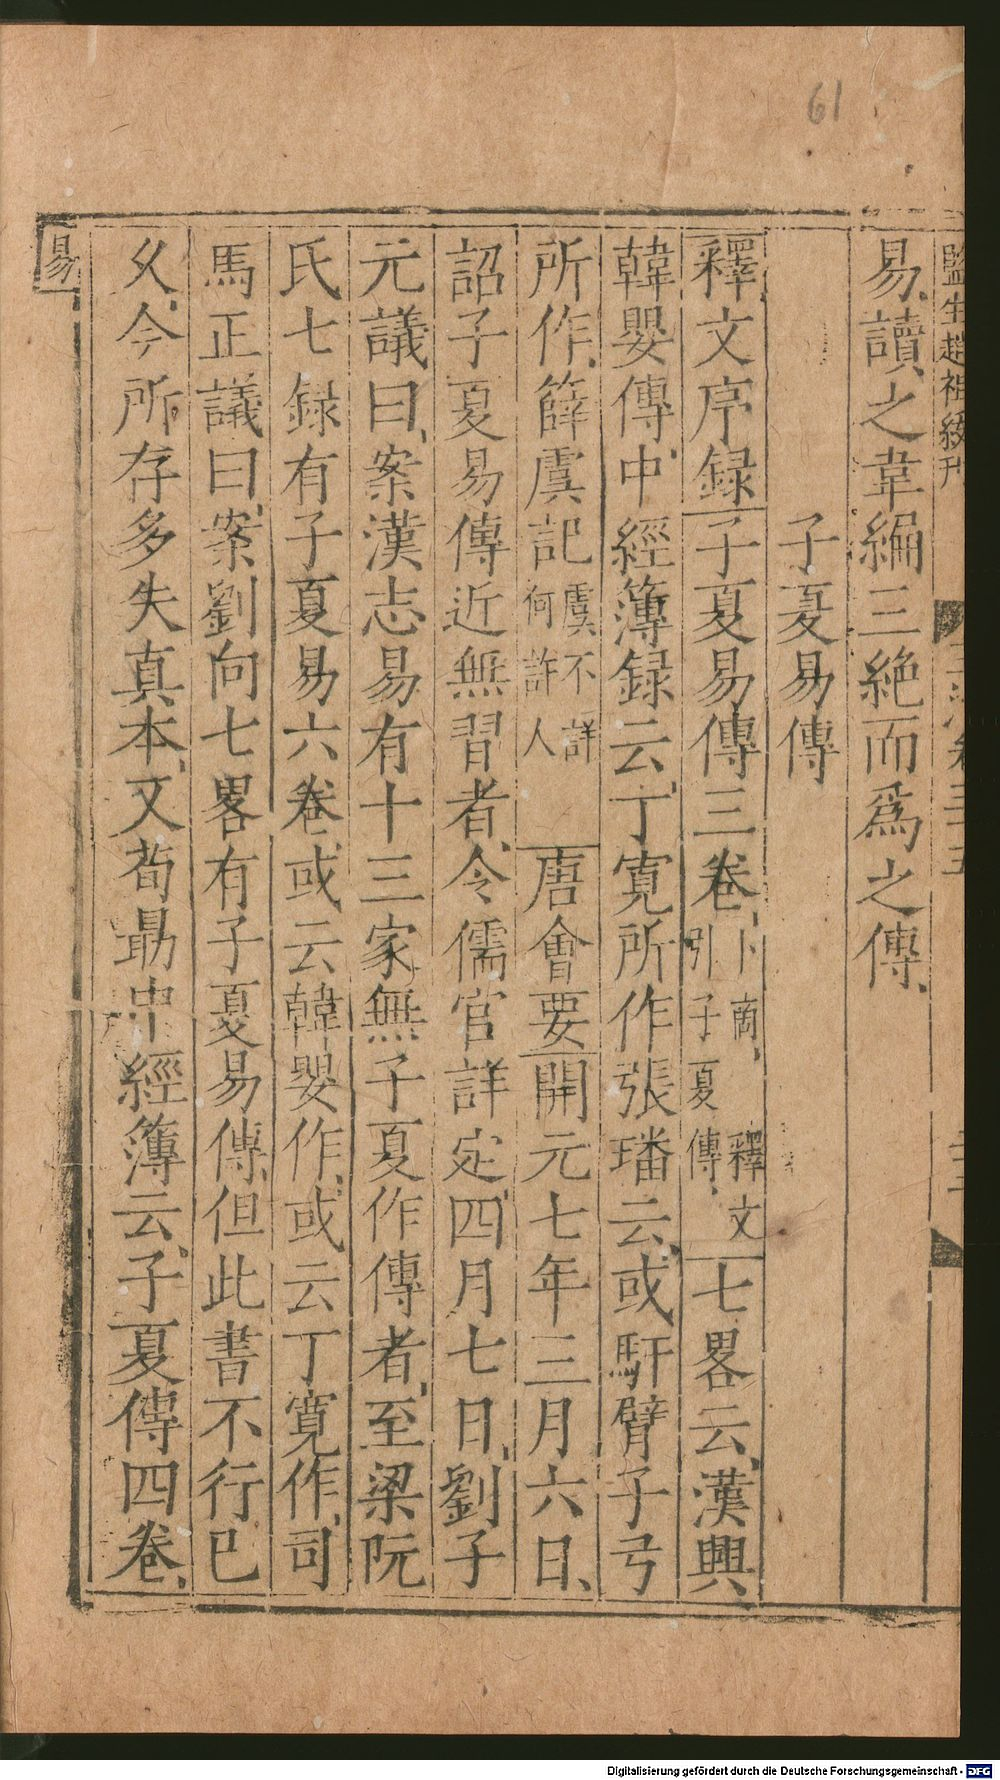 61
監生趙祖綬刊
易讀之韋編三絶而爲之傳、
子夏易傳
釋文序録子夏易傳三卷、卜商、釋文引子夏傳、七畧云、漢興、
韓嬰傳、中經簿録云、丁寬所作張璠云、或馯臂子弓
所作、薛虞記虞不詳何許人 唐會要開元七年三月六日、
詔子夏易傳近無習者、令儒官詳定、四月七日、劉子
元議曰、案漢志易有十三家無子夏作傳者、至梁阮
氏七録有子夏易六卷、或云韓嬰作、或云丁寬作、司
馬正議曰、案劉向七畧有子夏易傳、但此書不行已
乆、今所存多失真本、又荀勗中經簿云、子夏傳四卷、
易
Digitalisierung gefördert durch die Deutsche Forschungsgemeinschaft - DFG